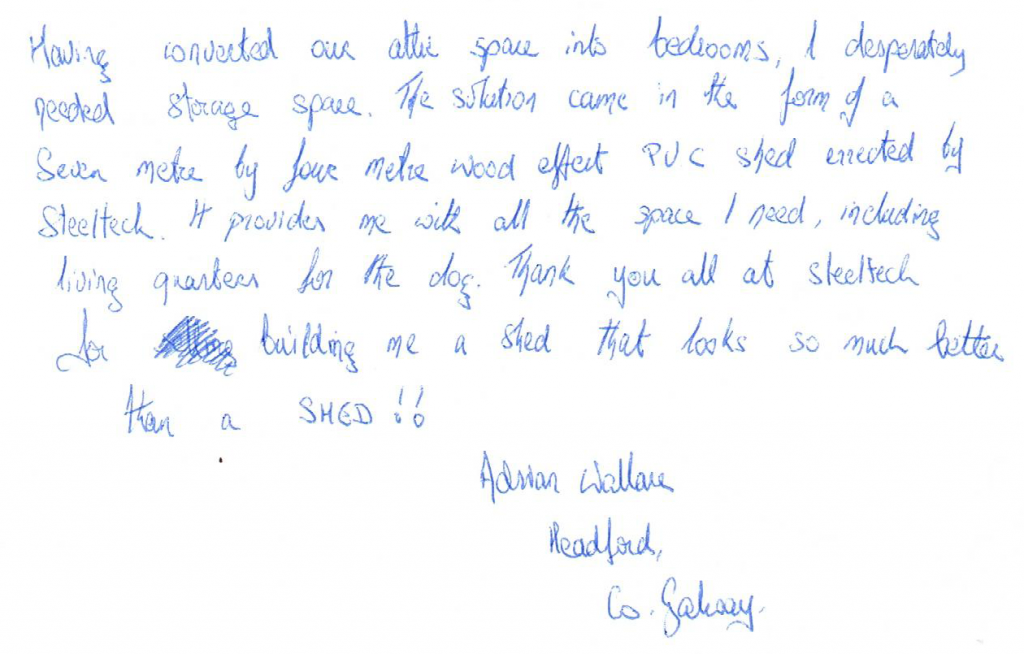 Having converted our attic space into bedrooms, I desperately
needed storage space. The solution came in the form of a
Seven metre by four metre wood effect PVC shed errected by
Steeltech. It provides me with all the space I need, including
living quarters for the dog. Thank you all at steeltech
for building me a shed that looks so much better
than a SHED!!
Adrian Wallace
Headford,
Co. Galway.